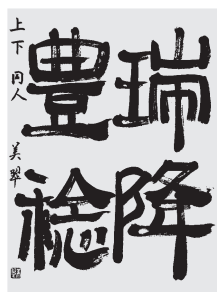 瑞降
豊稔
上下 円人 美翠